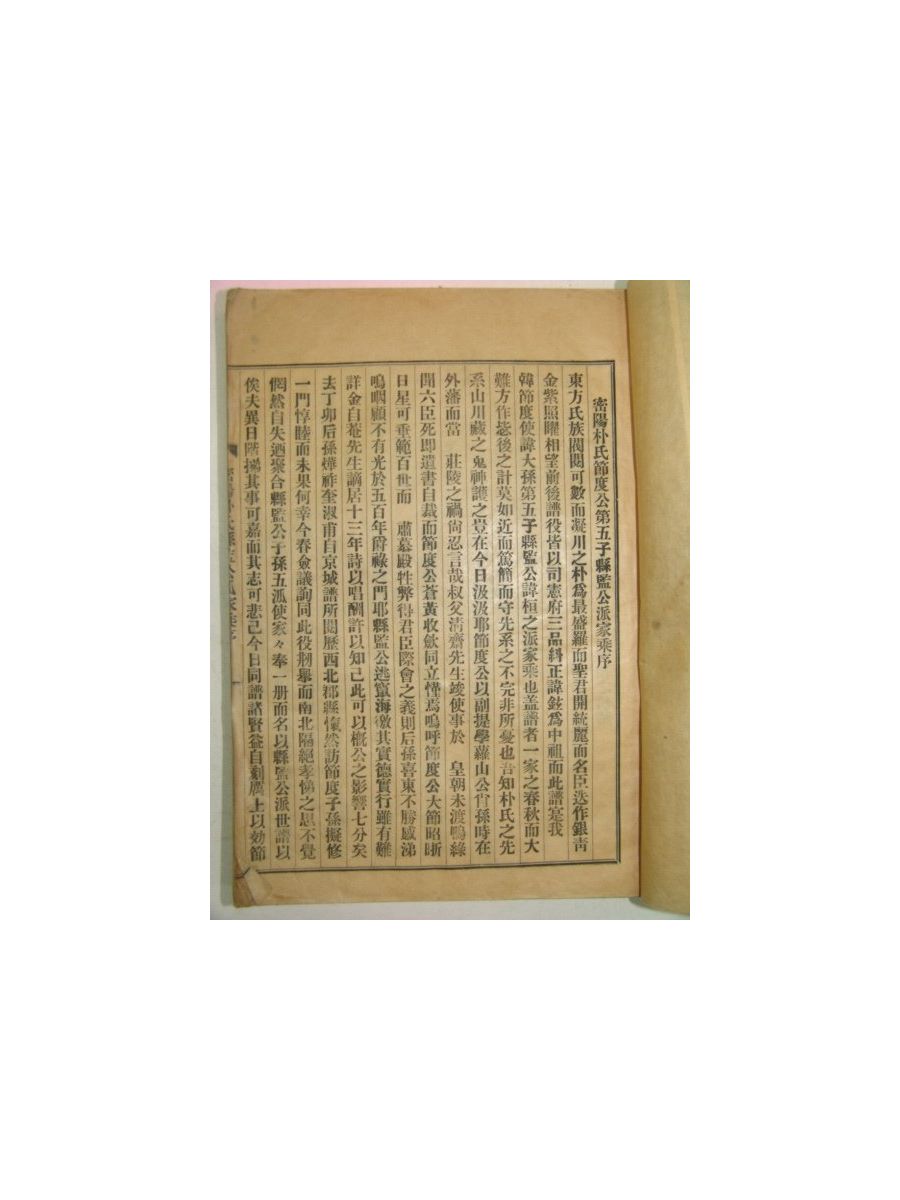 密陽朴氏節度公第五子縣監公派家乘序
東方氏族閥閱可數而凝川之朴爲最盛羅而聖君開統麗而名臣迭作銀靑
金紫照曜相望前後譜役皆以司憲府三品糾正諱鉉爲中祖而此譜寔我
韓節度使諱大孫第五子縣監公諱桓之派家乘也盖譜者一家之春秋而大
難方作毖後之計莫如近而篤簡而守先系之不完非所憂也吾知朴氏之先
系山川藏之鬼神護之豈在今日汲汲耶節度公以副提學蘿山公肖孫時在
外藩而當 莊陵之禍尙忍言哉叔父淸齋先生竣使事於 皇朝未渡鴨綠
聞六臣死即遺書自裁而節度公蒼黃收斂同立慬焉嗚呼節度公大節昭晣
日星可垂範百世而 肅慕殿牲弊得君臣際會之義則后孫喜東不勝感涕
嗚咽顧不有光於五百年爵祿之門耶縣監公逃竄海徼其實德實行雖有難
詳金自菴先生謫居十三年詩以唱酬許以知己此可以槪公之影響七分矣
去丁卯后孫燁祚奎淑甫自京城譜所閱歷西北郡縣愾然訪節度子孫擬修
一門惇睦而未果何幸今春僉議詢同此役刱擧而南北隔絕孝悌之思不覺
惘然自失迺聚合縣監公子孫五派使家々奉一册而名以縣監公派世譜以
俟夫異日階揚其事可嘉而其志可悲已今日同譜諸賢益自刻厲上以効節